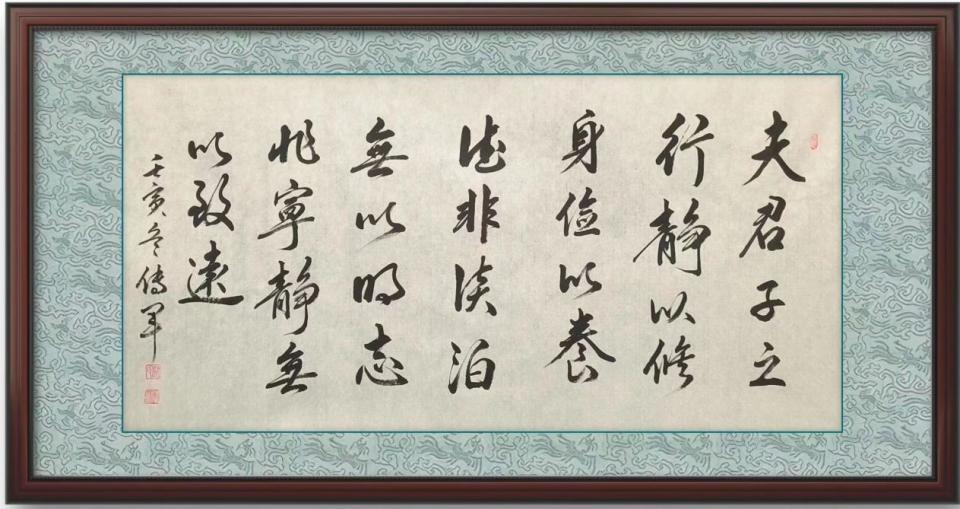 夫君子之
行静以修
身俭以养
德非淡泊
無以明志
非寧静無
以致遠
壬寅冬傳军